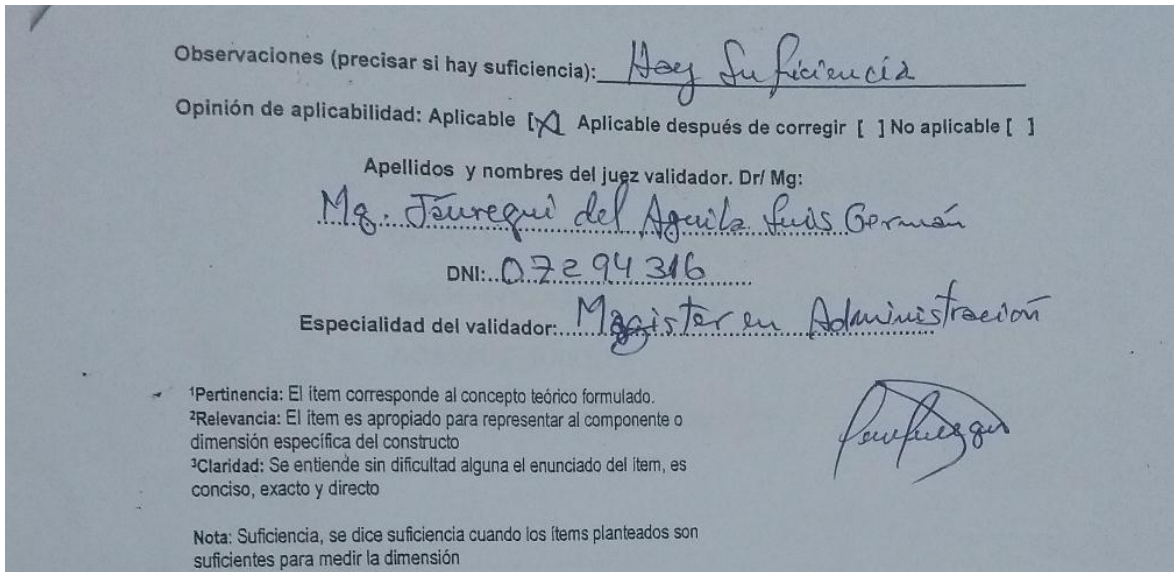 Observaciones (precisar si hay suficiencia): Hay Suficiencia
Opinión de aplicabilidad: Aplicable [X] Aplicable después de corregir [ ] No aplicable [ ]
Apellidos y nombres del juez validador. Dr/ Mg:
Mg. Jáuregui del Aguila Luis Germán
DNI: 07294316
Especialidad del validador: Magister en Administración
¹Pertinencia: El ítem corresponde al concepto teórico formulado.
²Relevancia: El ítem es apropiado para representar al componente o
dimensión específica del constructo
³Claridad: Se entiende sin dificultad alguna el enunciado del ítem, es
conciso, exacto y directo
Nota: Suficiencia, se dice suficiencia cuando los ítems planteados son
suficientes para medir la dimensión